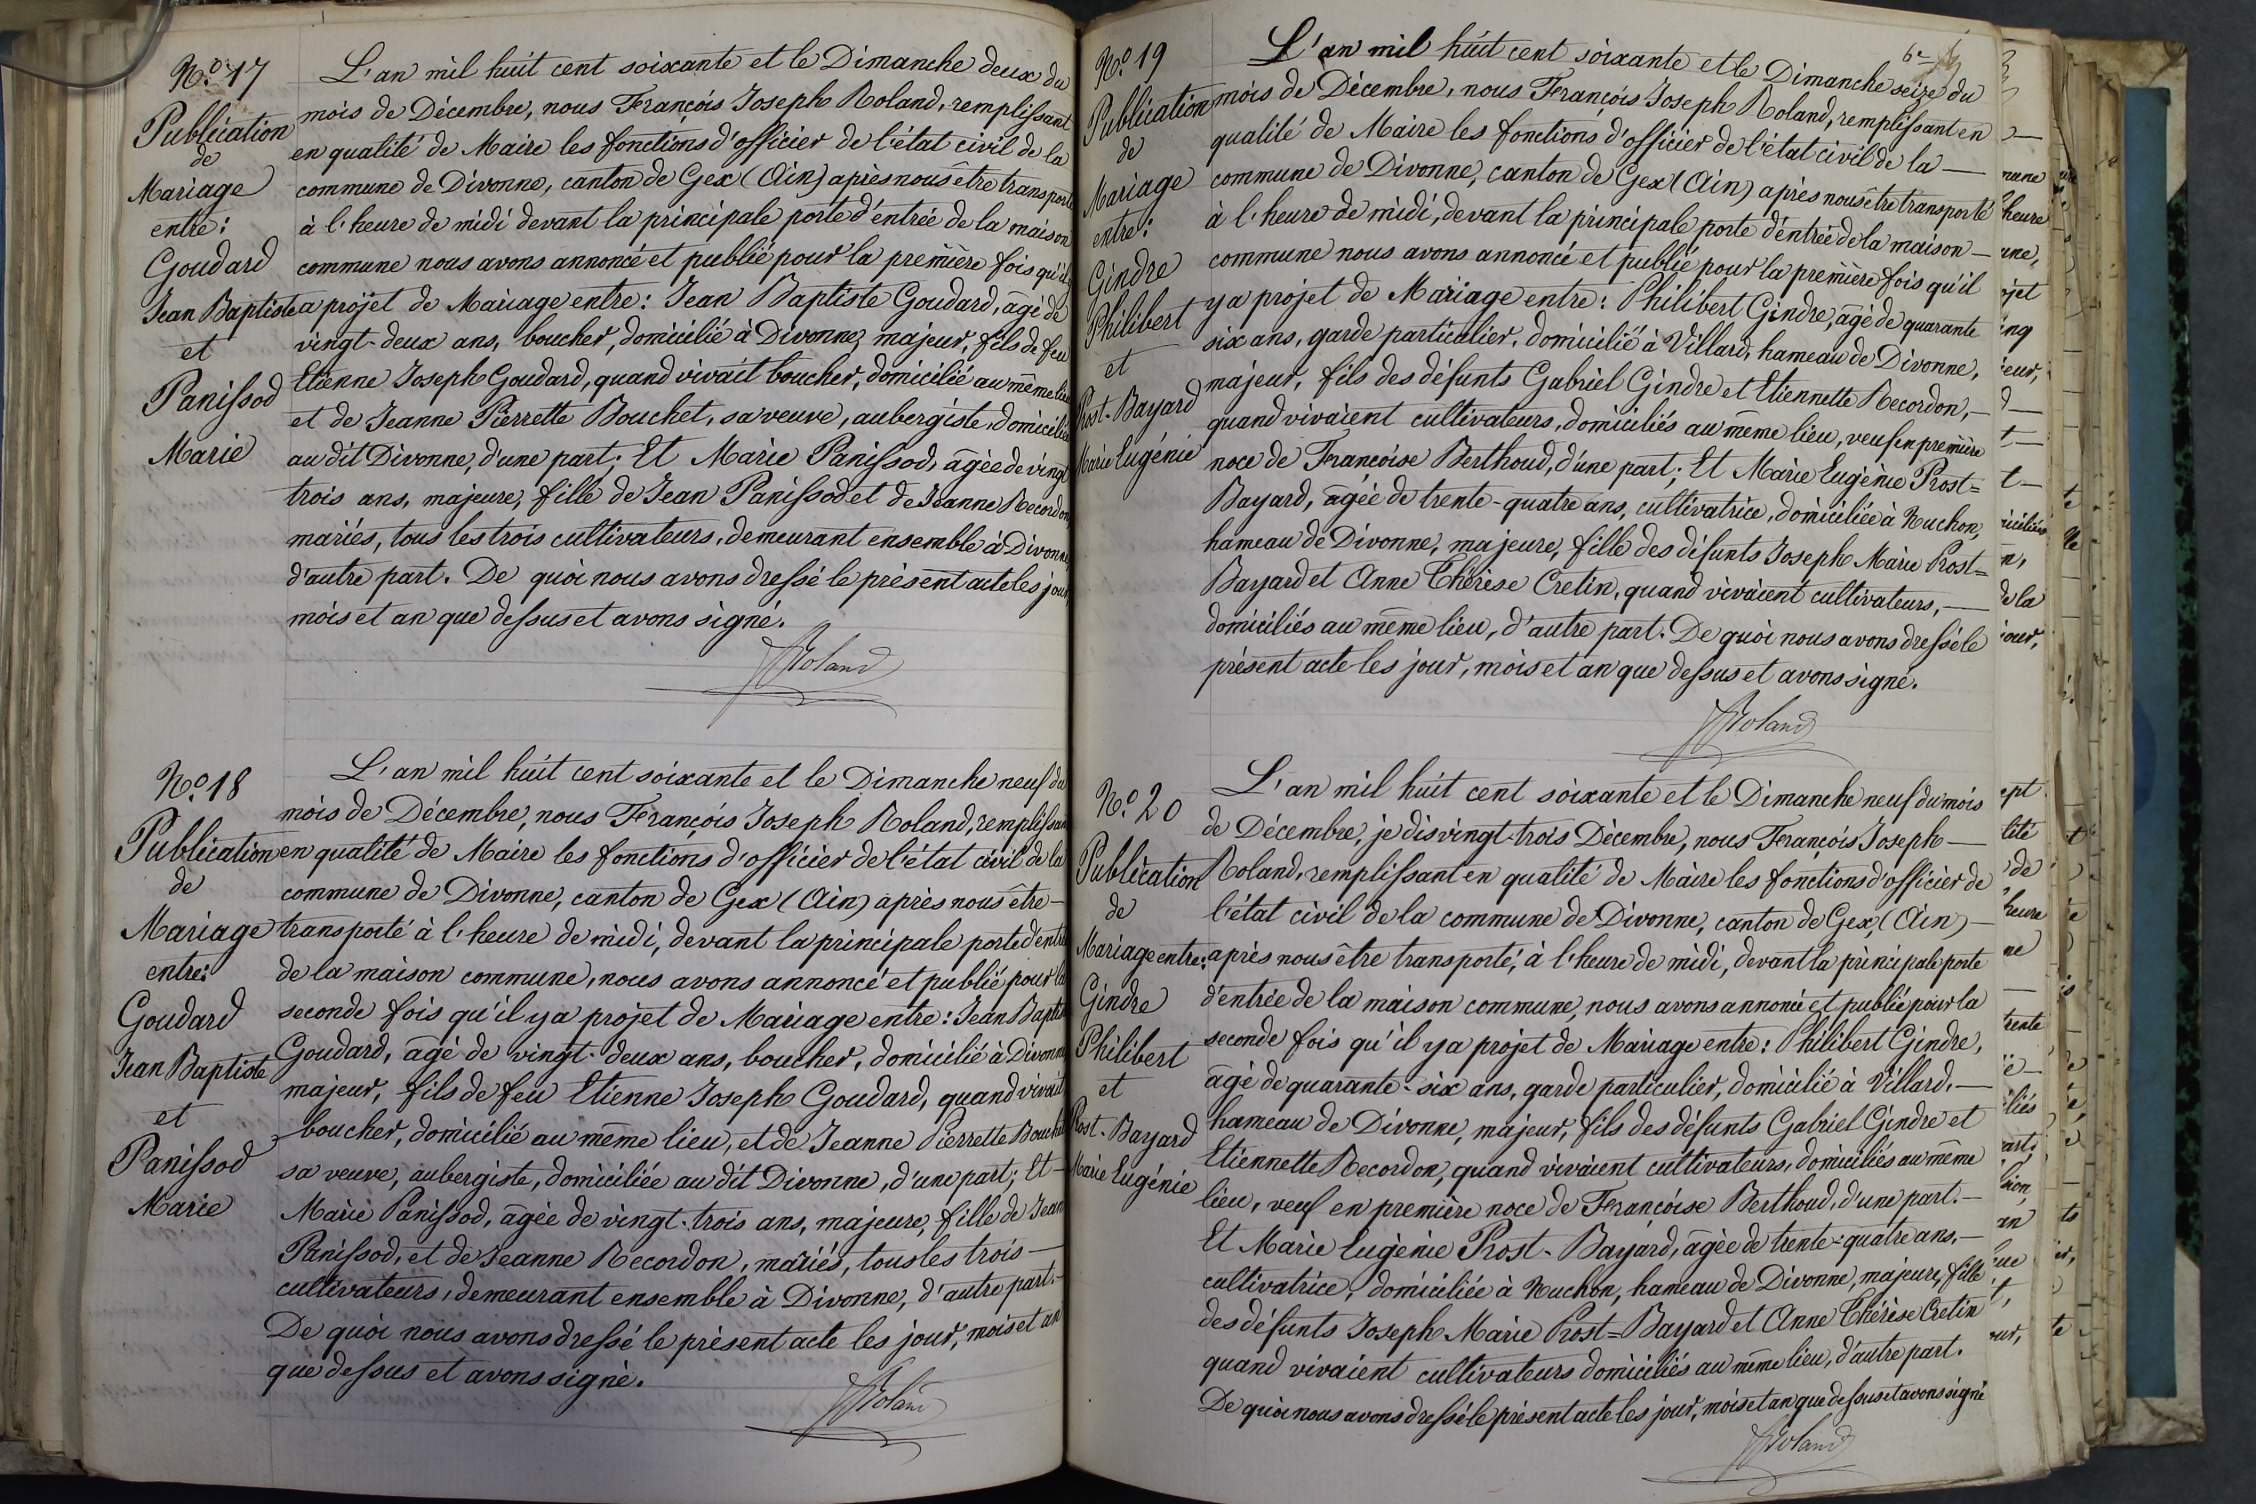 No. 17
Publication
de
Mariage
entre:
Goudard
Jean Baptiste
et
Panissod
Marie
L'an mil huit cent soixante et le Dimanche deux du
mois de Décembre, nous François Joseph Roland, remplissant
en qualité de Maire les fonctions d'officier de l'état civil de la
commune de Divonne, canton de Gex (Ain) après nous être transporté
à l'heure de midi devant la principale porte d'entrée de la maison
commune nous avons annoncé et publié pour la première fois qu'il y
a projet de Mariage entre: Jean Baptiste Goudard, âgé de
vingt-deux ans, boucher, domicilié à Divonne, majeur, fils de feu
Etienne Joseph Goudard, quand vivait boucher, domicilié au même lieu
et de Jeanne Pierrette Bouchet, sa veuve, aubergiste, domiciliée
au dit Divonne, d'une part; Et Marie Panissod, âgée de vingt
trois ans, majeure, fille de Jean Panissod et de Jeanne Recordon,
mariés, tous les trois cultivateurs, demeurant ensemble à Divonne,
d'autre part. De quoi nous avons dressé le présent acte les jour,
mois et an que dessus et avons signé.
Roland
No. 18
Publication
de
Mariage
entre:
Goudard
Jean Baptiste
et
Panissod
Marie
L'an mil huit cent soixante et le Dimanche neuf du
mois de Décembre, nous François Joseph Roland, remplissant
en qualité de Maire les fonctions d'officier de l'état civil de la
commune de Divonne, canton de Gex (Ain) après nous être
transporté à l'heure de midi, devant la principale porte d'entrée
de la maison commune, nous avons annoncé et publié pour la
seconde fois qu'il y a projet de Mariage entre: Jean Baptiste
Goudard, âgé de vingt-deux ans, boucher, domicilié à Divonne
majeur, fils de feu Etienne Joseph Goudard, quand vivait
boucher, domicilié au même lieu, et de Jeanne Pierrette Bouchet
sa veuve, aubergiste, domiciliée au dit Divonne, d'une part; Et
Marie Panissod, âgée de vingt-trois ans, majeure, fille de Jean
Panissod, et de Jeanne Recordon, mariés, tous les trois
cultivateurs, demeurant ensemble à Divonne, d'autre part.
De quoi nous avons dressé le présent acte les jour, mois et an
que dessus et avons signé.
Roland
6e
No. 19
Publication
de
Mariage
entre:
Gindre
Philibert
et
Prost-Bayard
Marie Eugénie
L'an mil huit cent soixante et le Dimanche seize du
mois de Décembre, nous François Joseph Roland, remplissant en
qualité de Maire les fonctions d'officier de l'état civil de la
commune de Divonne, canton de Gex (Ain) après nous être transporté
à l'heure de midi, devant la principale porte d'entrée de la maison
commune nous avons annoncé et publié pour la première fois qu'il
y a projet de Mariage entre: Philibert Gindre, âgé de quarante
six ans, garde particulier, domicilié à Villard, hameau de Divonne,
majeur, fils des défunts Gabriel Gindre et Etiennette Recordon,
quand vivaient cultivateurs, domiciliés au même lieu, veuf en première
noce de Françoise Berthoud, d'une part; Et Marie Eugénie Prost=
Bayard, âgée de trente-quatre ans, cultivatrice, domiciliée à Ruchon,
hameau de Divonne, majeure, fille des défunts Joseph Marie Prost=
Bayard et Anne Thérèse Cretin, quand vivaient cultivateurs,
domiciliés au même lieu, d'autre part. De quoi nous avons dressé le
présent acte les jour, mois et an que dessus et avons signé.
Roland
No. 20
Publication
de
Mariage entre:
Gindre
Philibert
et
Prost-Bayard
Marie Eugénie
L'an mil huit cent soixante et le Dimanche neuf du mois
de Décembre, je dis vingt-trois Décembre, nous François Joseph
Roland, remplissant en qualité de Maire les fonctions d'officier de
l'état civil de la commune de Divonne, canton de Gex, (Ain)
après nous être transporté, à l'heure de midi, devant la principale porte
d'entrée de la maison commune, nous avons annoncé et publié pour la
seconde fois qu'il y a projet de Mariage entre: Philibert Gindre,
âgé de quarante-six ans, garde particulier, domicilié à Villard,
hameau de Divonne, majeur, fils des défunts Gabriel Gindre et
Etiennette Recordon, quand vivaient cultivateurs, domiciliés au même
lieu, veuf en première noce de Françoise Berthoud, d'une part.
Et Marie Eugénie Prost-Bayard, âgée de trente-quatre ans,
cultivatrice, domiciliée à Ruchon, hameau de Divonne, majeure, fille
des défunts Joseph Marie Prost=Bayard et Anne Thérèse Cretin
quand vivaient cultivateurs domiciliés au même lieu, d'autre part.
De quoi nous avons dressé le présent acte les jour, mois et an que dessus et avons signé
Roland